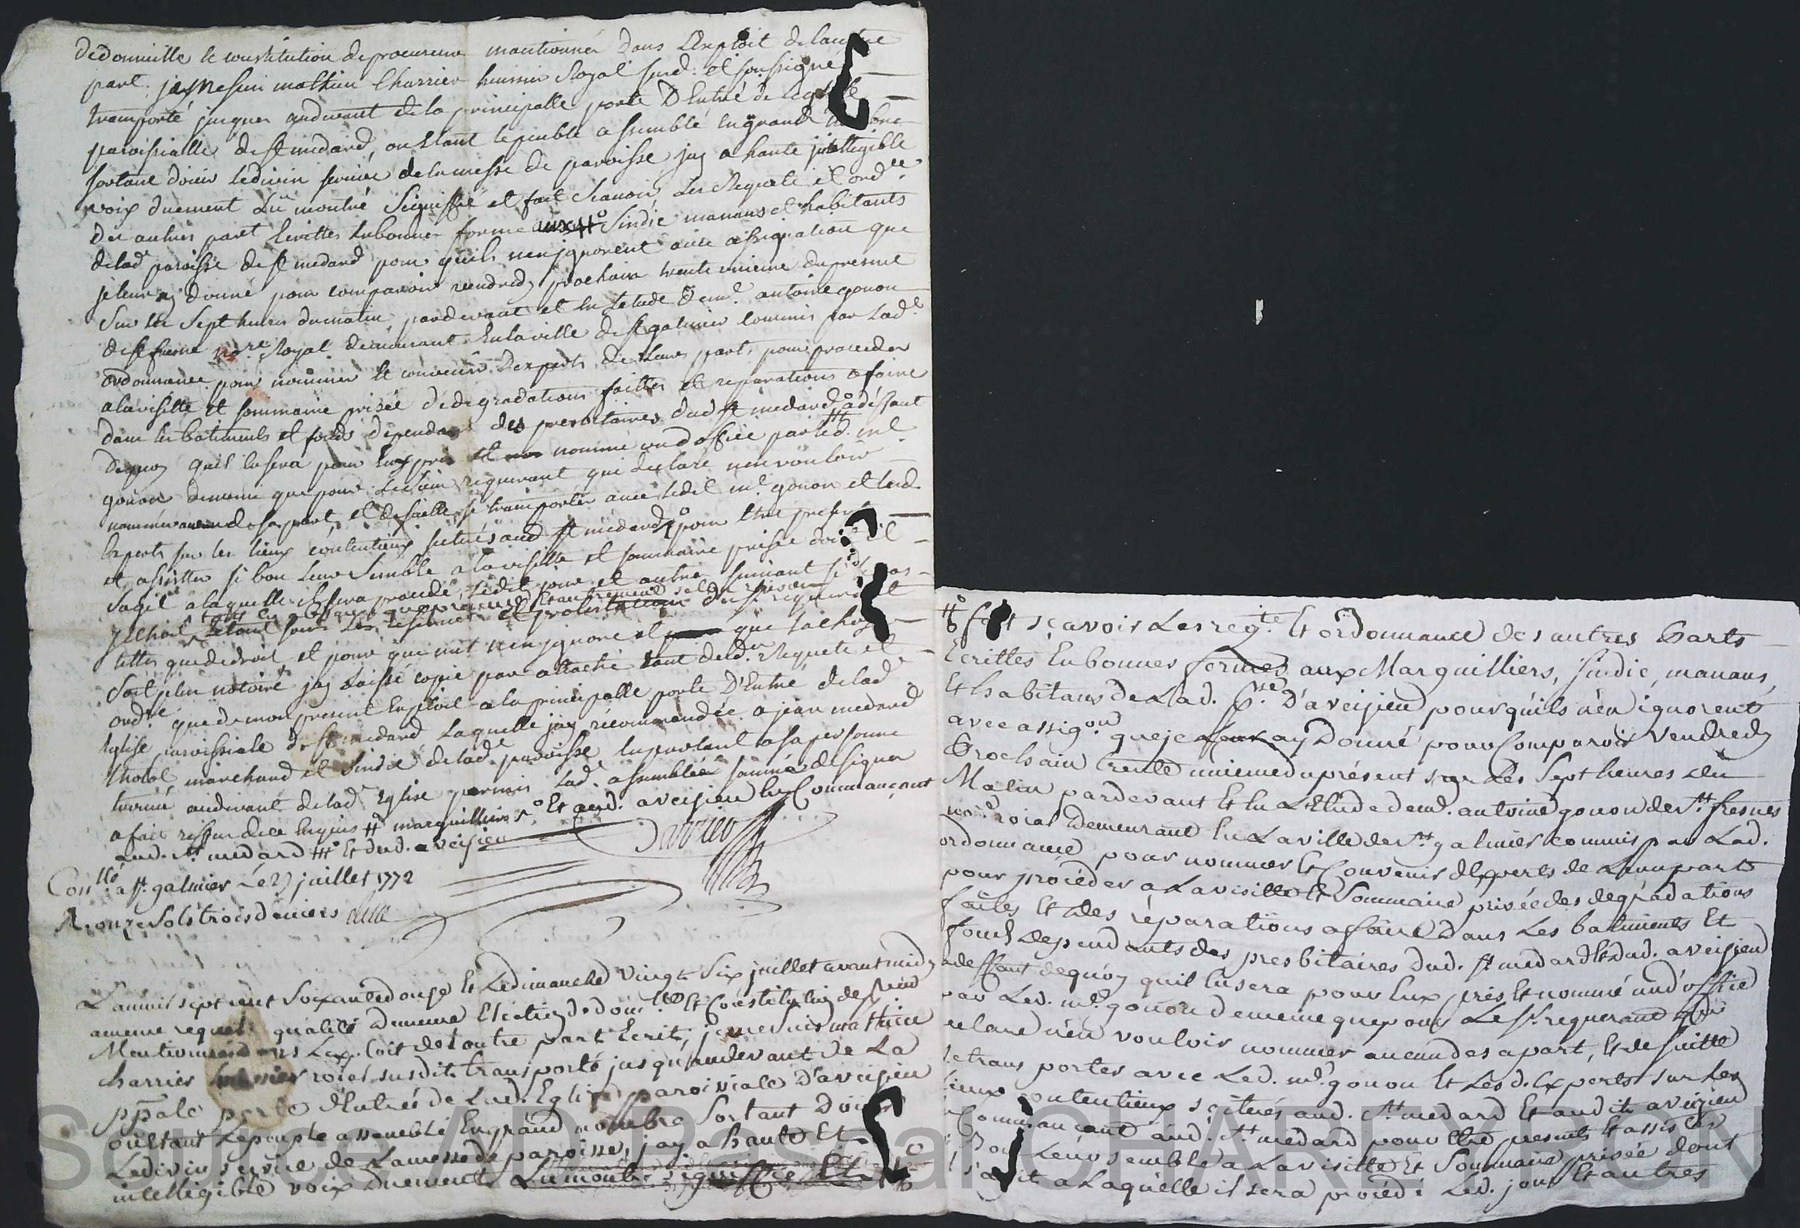 de domicille et constitution de procureur mantionnés dans l'exploit de lautre
part. jay Messire mathieu Charrier huissier Royal susd. et soussigné
transporté jusques audevant de la principalle porte D'Entré de Leglize
paroissialle de st medard, ou etant le peuble assemblé en grand nombre
sortant d'ouir le divin service de la messe de paroisse jay a haute intelligible
voix duement Lu montré Signiffié et fait scavoir, Les Requete et ordce
des autres part Ecrittes en bonnes forme aux Sindic manans et habitants
de lad. paroisse de st medard pour quils n'en ignorent avec assignation que
je leur ay donné pour comparoir vendredy prochain trente unieme du present
Sur les Sept heures du matin, pardevant et en letude de me. antoine gonon
de st fresne nore. Royal demeurant En la ville de st galmier commis par lad.
ordonnance pour nommer et convenir d'experts de leurs parts pour proceder
a la visitte et sommaire prisée de degradations faittes et reparations a faire
dans les batiments et fonds dependants des presbitaires dud. st medard a deffaut
dequoy quil en sera pour Eux pris et nommé un d'office par led. me.
gonon de meme que pour Le sieur requerant qui declare n'en vouloir
nommer aucun de sa part, et de suitte se transporter avec ledit me. gonon et les d.
Experts sur les lieux contentieux scitués aud. st medard pour etre presents
et assister si bon leur semble a la visitte et sommaire prisée dont il
sagit a laquelle il sera procedé ledit jour et autres suivant
Le tout sous les reserves et protestations du sr. requerant
telles que de droit et pour que nul n'en ignore et que la chose
soit plus notoire jay laissé copie par attache tant desd. Requete et
ordce. que de mon present Exploit a la principalle porte D'Entré de lad.
Eglise paroissiale de st medard laquelle jay recommandée a jean medard
tholot marchand et sindic de lad. paroisse en parlant a sa personne
trouvé audevant de lad. Eglise parmis lad. assemblée sommé de signer
a fait reffus de ce Enquis # marguilliers # Et aud. aveizieu En Commançant
aud. st. medard # Et dud. aveizieu
Charrier
Conllé a st. galmier le 27 juillet 1772
R. onze sols trois deniers
L'an mil sept cent soixante douze et Le dimanche vingt six juillet avant midy
a meme requete qualité demeure Election de domlle Et Constitution de procureur
Mentionnés dans Lexploit de l'autre part Ecrit, je messire mathieu
charrier huissier roial susdit transporté jusqu'audevant de La
pp̃ale porte d'Entrés de Lad. Eglize paroissiale D'aveizieu
ou etant Le peuple assemblé En grand nombre sortant D'ouir
Le divin service de La messe de paroisse, jay a haute Et
intelligible voix Duement Lu montré signiffié Et
# fait sçavoir Les reqte. Et ordonnance des autres parts
Ecrittes En bonnes formes aux Marguilliers, sindic, manans,
Et habitans de Lad. psse. D'aveizieu pour qu'ils n'en ignorent
avec assigon. que je Leur ay Donné pour Comparoir Vendredy
prochain trente unieme du présent sur Les Sept heures du
Matin pardevant Et En L'Etude de me. antoine gonon de st. fresnes
noro. roial Demeurant En La ville de st. galmier commis par Lad.
ordonnance pour nommer Et Convenir d'Experts de Leurs parts
pour procéder a La visitte Et Sommaire prisée des dégradations
faites Et Des réparations a faire Dans Les batiments Et
fonds dependants des presbitaires Dud. st medard Et dud. aveizieu
a deffaut dequoy quil En sera pour Eux pris Et nommé un d'office
par Led. me. gonon de meme que pour Le sr. requerant qui
declare n'en vouloir nommer aucun de sa part, Et de suitte
se transporter avec Led. me. gonon Et Les d. Experts sur Les
Lieux contentieux scitués aud. st medard Et audit aveizieu
En Commançant aud. st medard pour Etre presents Et assister
si Bon Leur semble a La visitte Et Sommaire prisée dont
il s'agit a Laquelle il sera procédé Led. jour Et autres
Source AD Pascal CHARLYRON